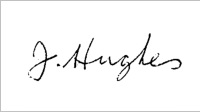 J. Hughes